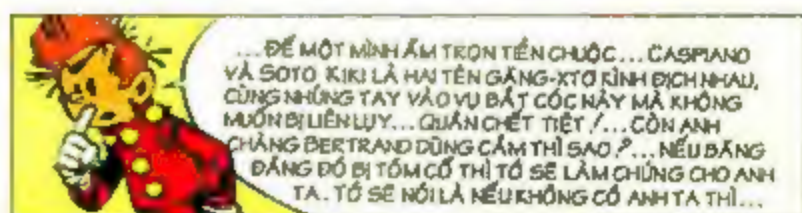 ...ĐỂ MỘT MÌNH ẴM TRỌN TIỀN CHUỘC... CASPIANO
VÀ SOTO KIKI LÀ HAI TÊN GĂNG-XTƠ KÌNH ĐỊCH NHAU,
CÙNG NHÚNG TAY VÀO VỤ BẮT CÓC NÀY MÀ KHÔNG
MUỐN BỊ LIÊN LỤY... QUÂN CHẾT TIỆT!... CÒN ANH
CHÀNG BERTRAND DŨNG CẢM THÌ SAO?... NẾU BĂNG
ĐẢNG ĐÓ BỊ TÓM CỔ THÌ TỚ SẼ LÀM CHỨNG CHO ANH
TA. TỚ SẼ NÓI LÀ NẾU KHÔNG CÓ ANH TA THÌ...